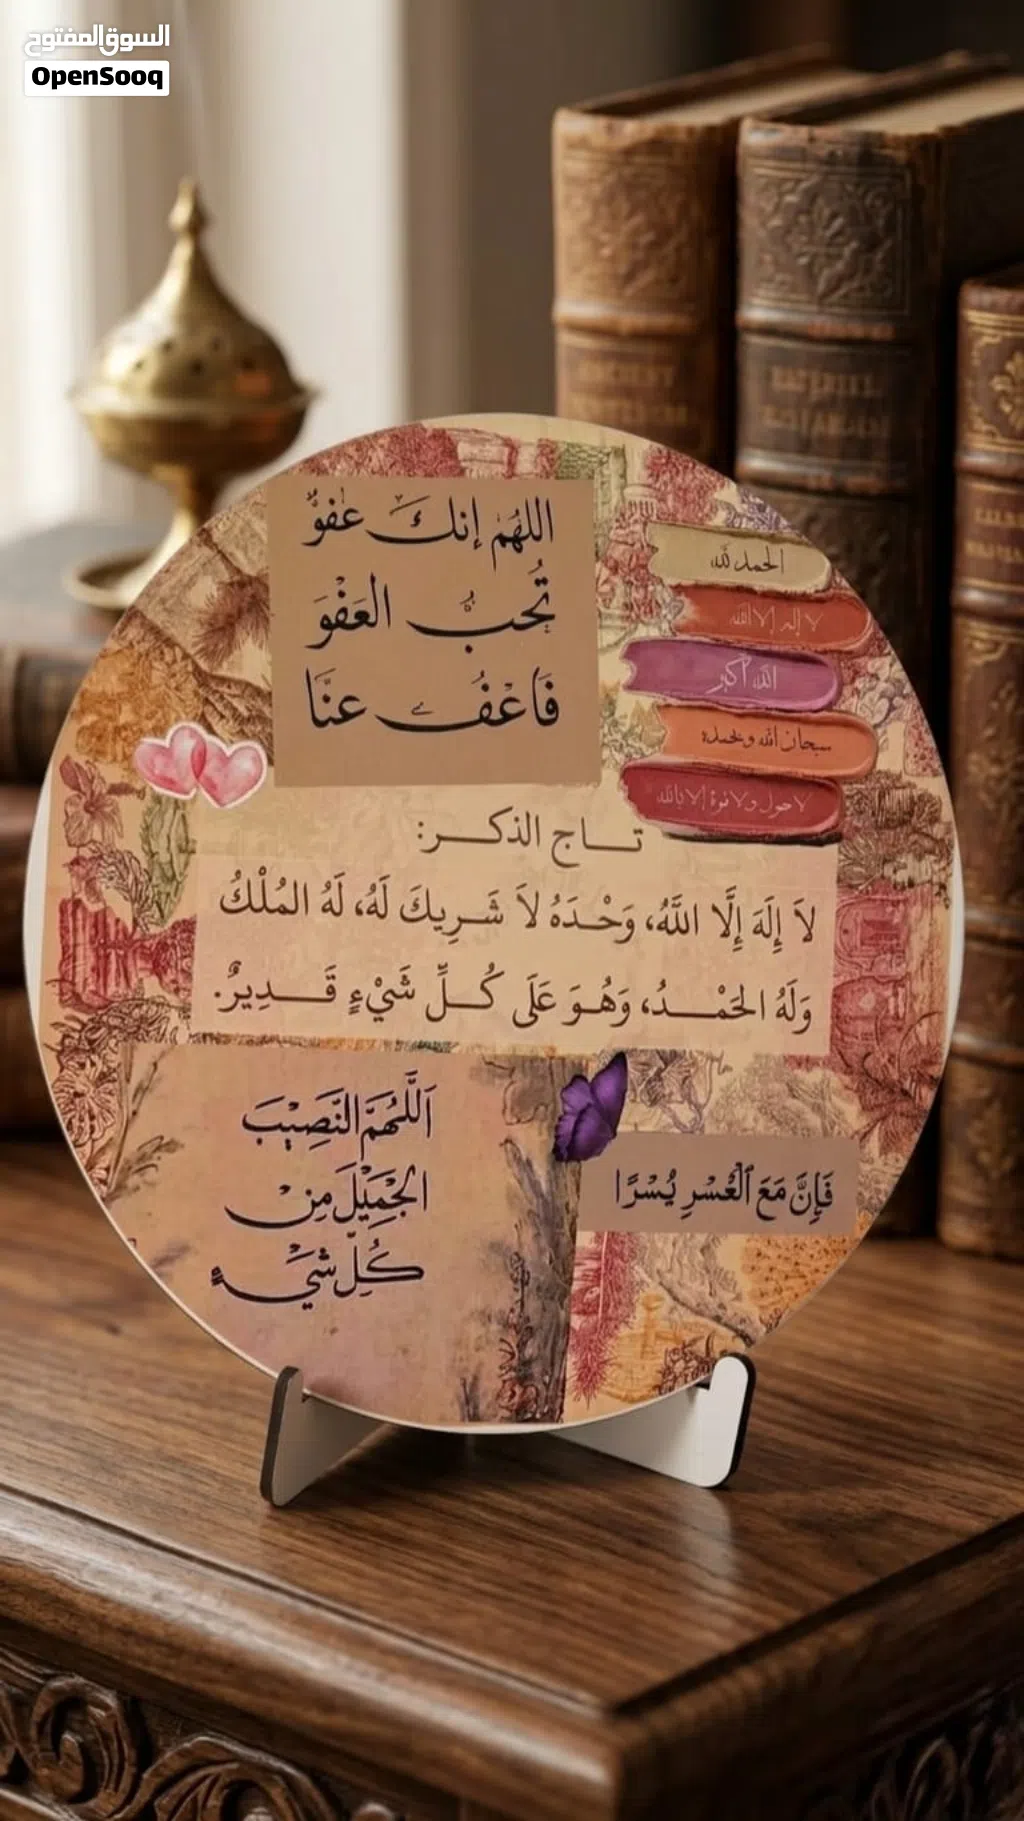 السوق المفتوح
OpenSooq
اللهُم إنكَ عَفوٌّ
تُحبُ العَفْوَ
فَاعْفُ عنَّا
الحمد لله
لا إله إلا الله
الله أكبر
سبحان الله وبحمده
لا حول ولا قوة إلا بالله
تاج الذكر:
لاَ إِلَهَ إِلَّا اللَّهُ، وَحْدَهُ لاَ شَرِيكَ لَهُ، لَهُ المُلْكُ
وَلَهُ الحَمْدُ، وَهُوَ عَلَى كُلِّ شَيْءٍ قَدِيرٌ.
اَللَّهُمَّ النَّصِيْبَ
الجَمِيْلَ مِنْ
كُلِّ شَيْءٍ
فَإِنَّ مَعَ ٱلْعُسْرِ يُسْرًا